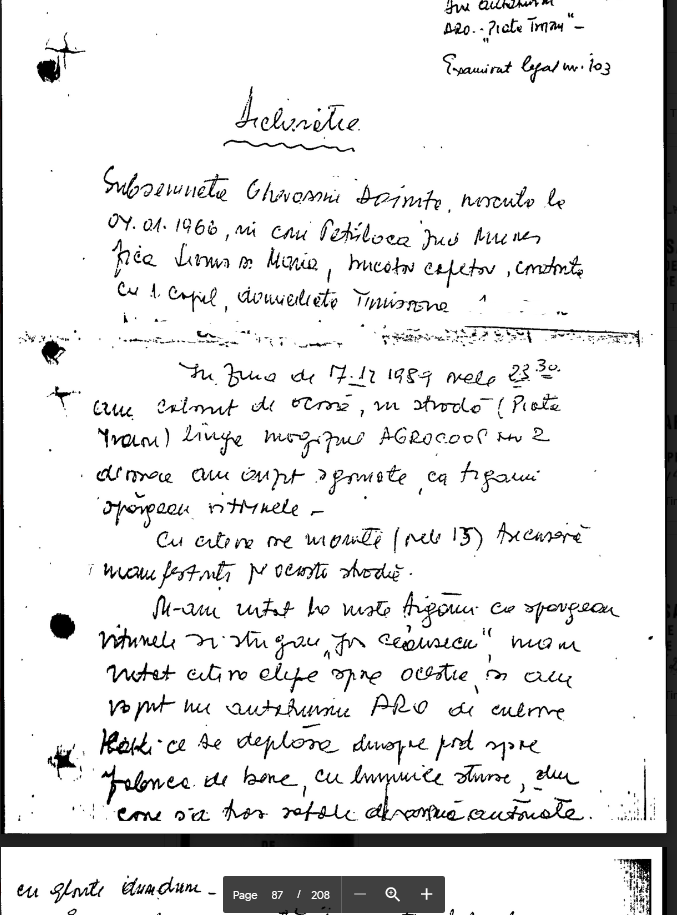 din autoturism
ARO - "Piața Traian" -
Examinat legal nr. 103
Declarație
Subsemnata Ghevasmi Dointe, născută la
04.01.1966, în com Petriloca jud Mureș
fiica lui și Maria, bucătar cofetar, căsătorită
cu 1 copil, domiciliată Timișoara
În ziua de 17.12 1989 orele 23.30.
am coborît de acasă, în stradă (Piața
Traian) lîngă magazinul AGROCOOP nr 2
deoarece am auzit zgomote, ca țiganii
spărgeau vitrinele -
Cu cîteva ore înainte (orele 15) trecuseră
manifestanți pe această stradă.
M-am uitat la niște țigani ce spărgeau
vitrinele și strigau "jos Ceaușescu", m-am
uitat cîteva clipe spre aceștia, și am
văzut un autoturism ARO de culoare
kaki ce se deplasa dinspre pod spre
fabrica de bere, cu luminile stinse, din
care s-a tras rafale de armă automată.
cu gloanțe dumdum -
Page 87 / 208